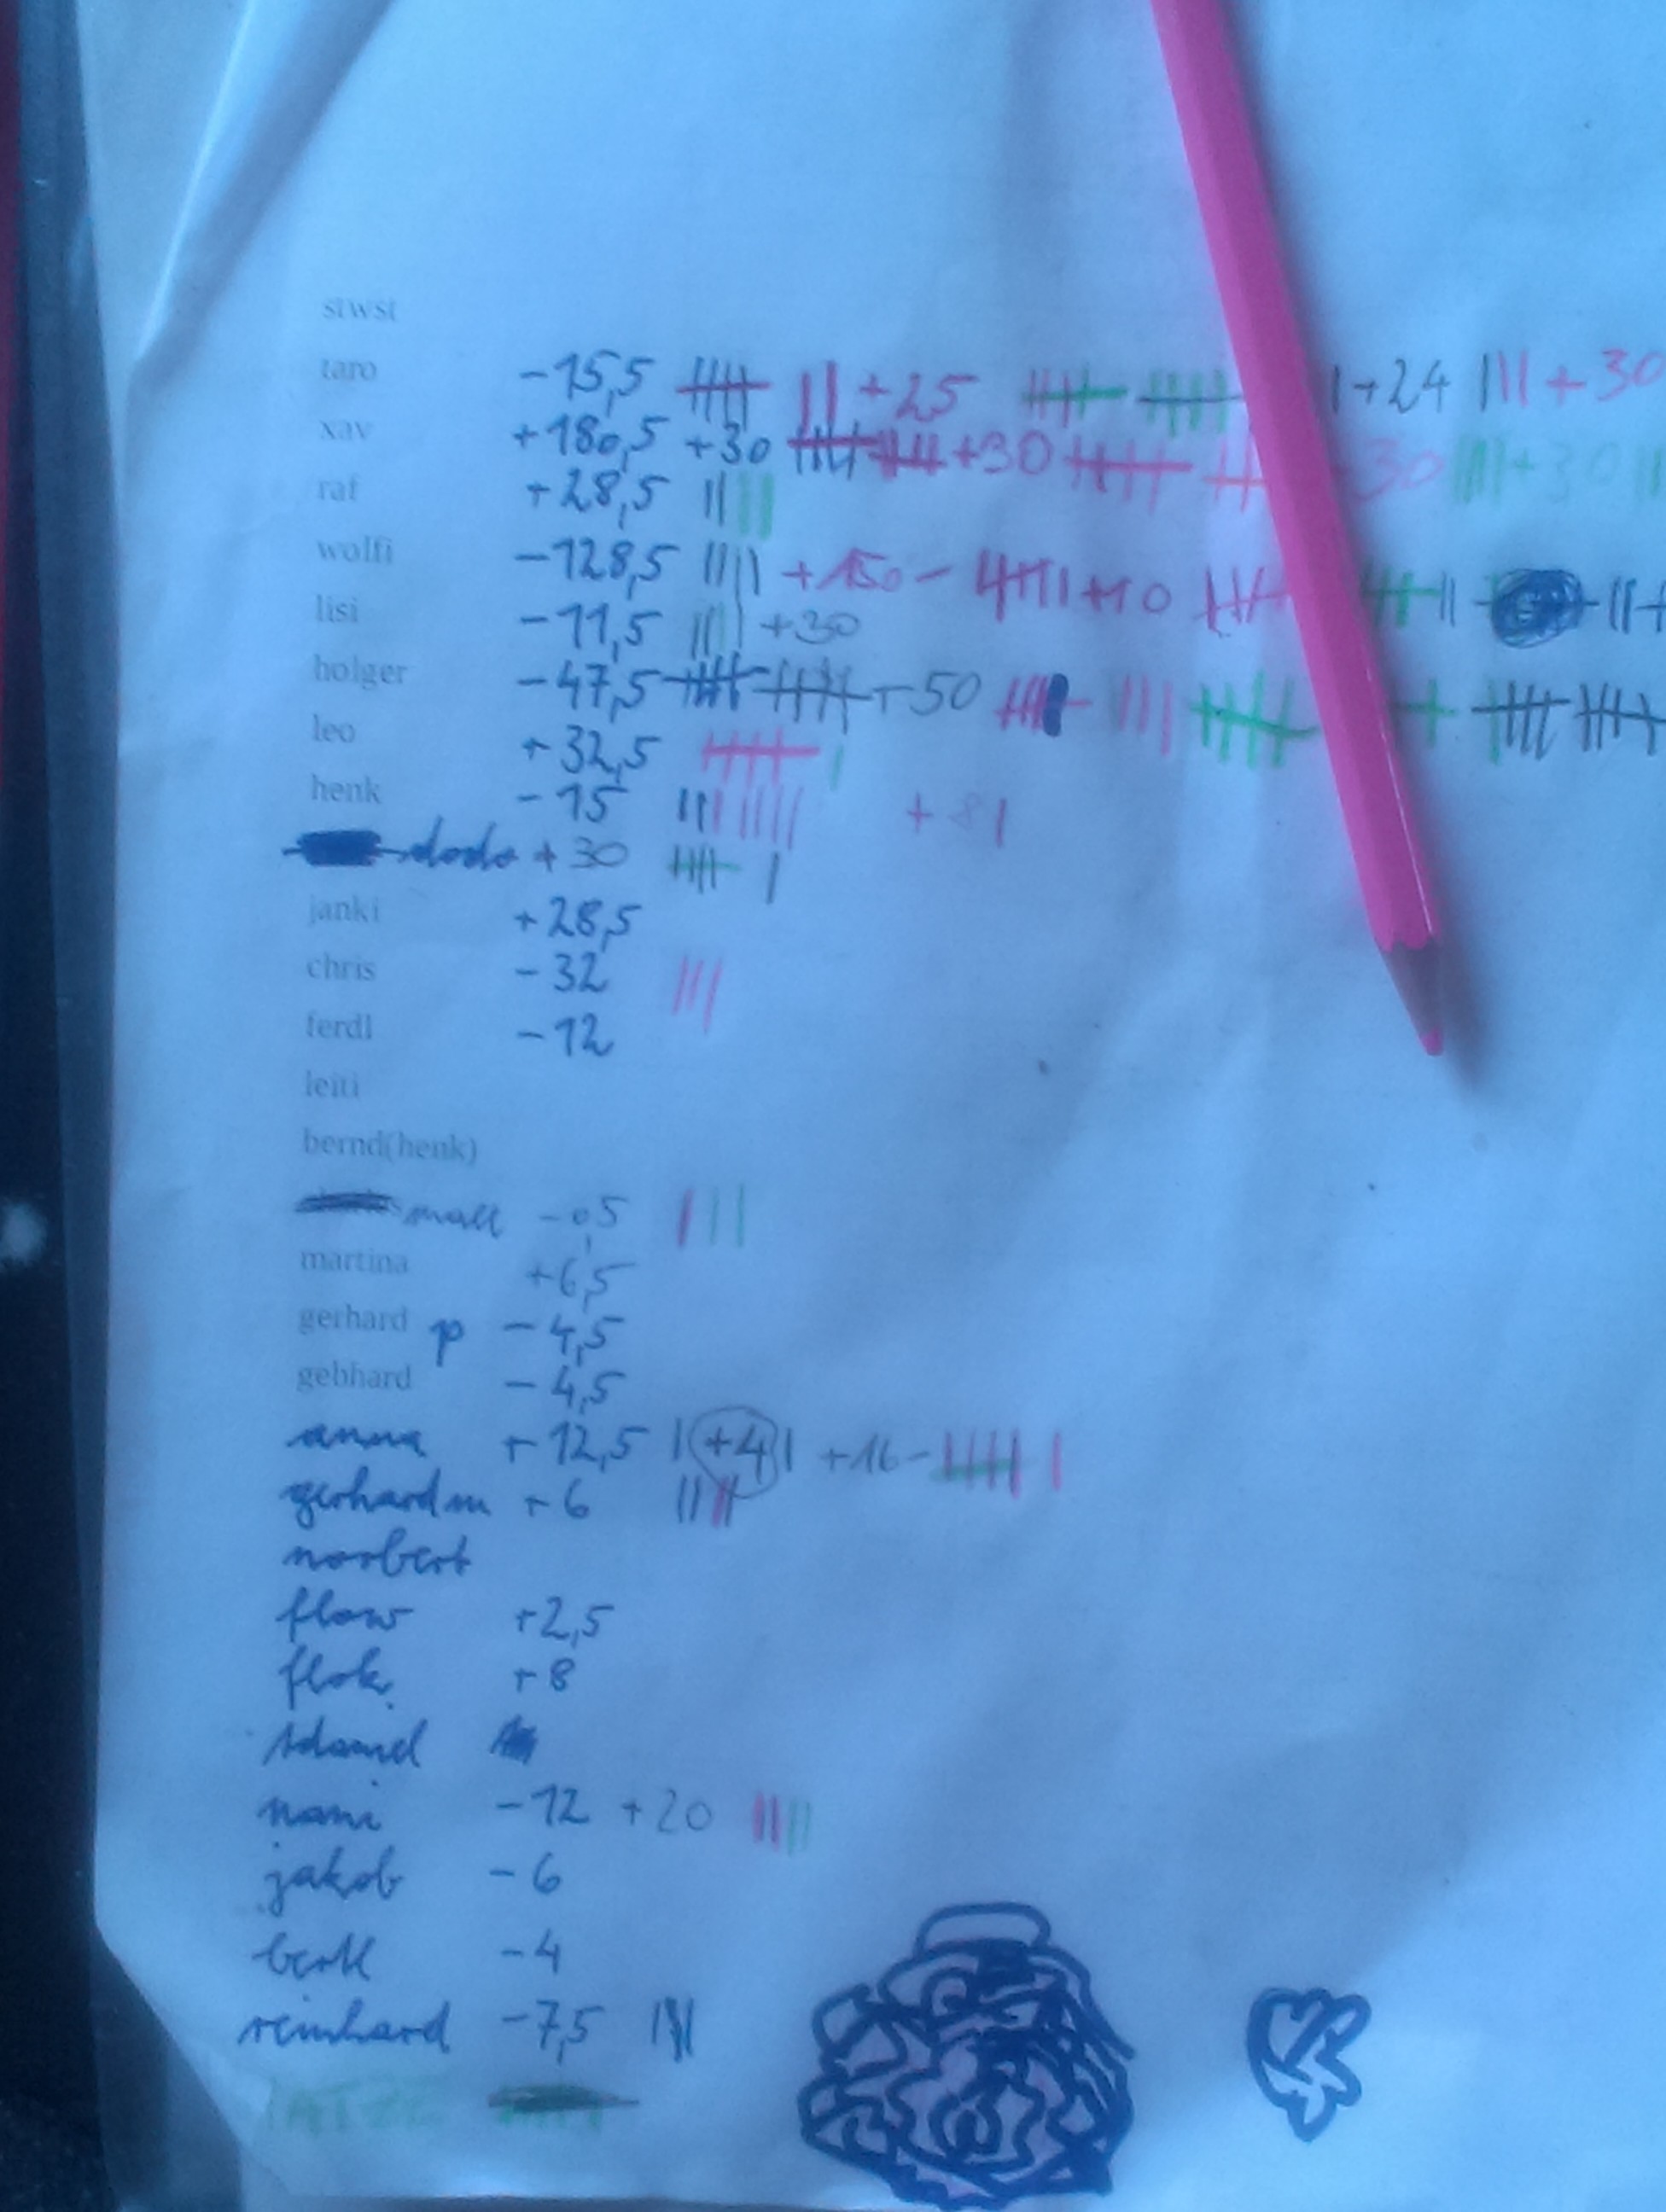 stwst
taro -15,5 |||| || +25 |||| |||| | +24 ||| +30
xav +180,5 +30 |||| |||| +30 |||| 30 +30
raf +28,5 || ||
wolfi -128,5 +150 - +10
lisi -11,5 +30
holger -47,5 +50
leo +32,5
henk -15 +81
dodo +30
janki +28,5
chris -32 |||
ferdl -12
leiti
bernd(henk)
-0,5 |||
martina +6,5
gerhard p -4,5
gebhard -4,5
anna +12,5 | +4 | +16 -
gerhard m +6 ||||
norbert
flow +2,5
flok +8
nami -12 +20 ||||
jakob -6
-4
reinhard -7,5